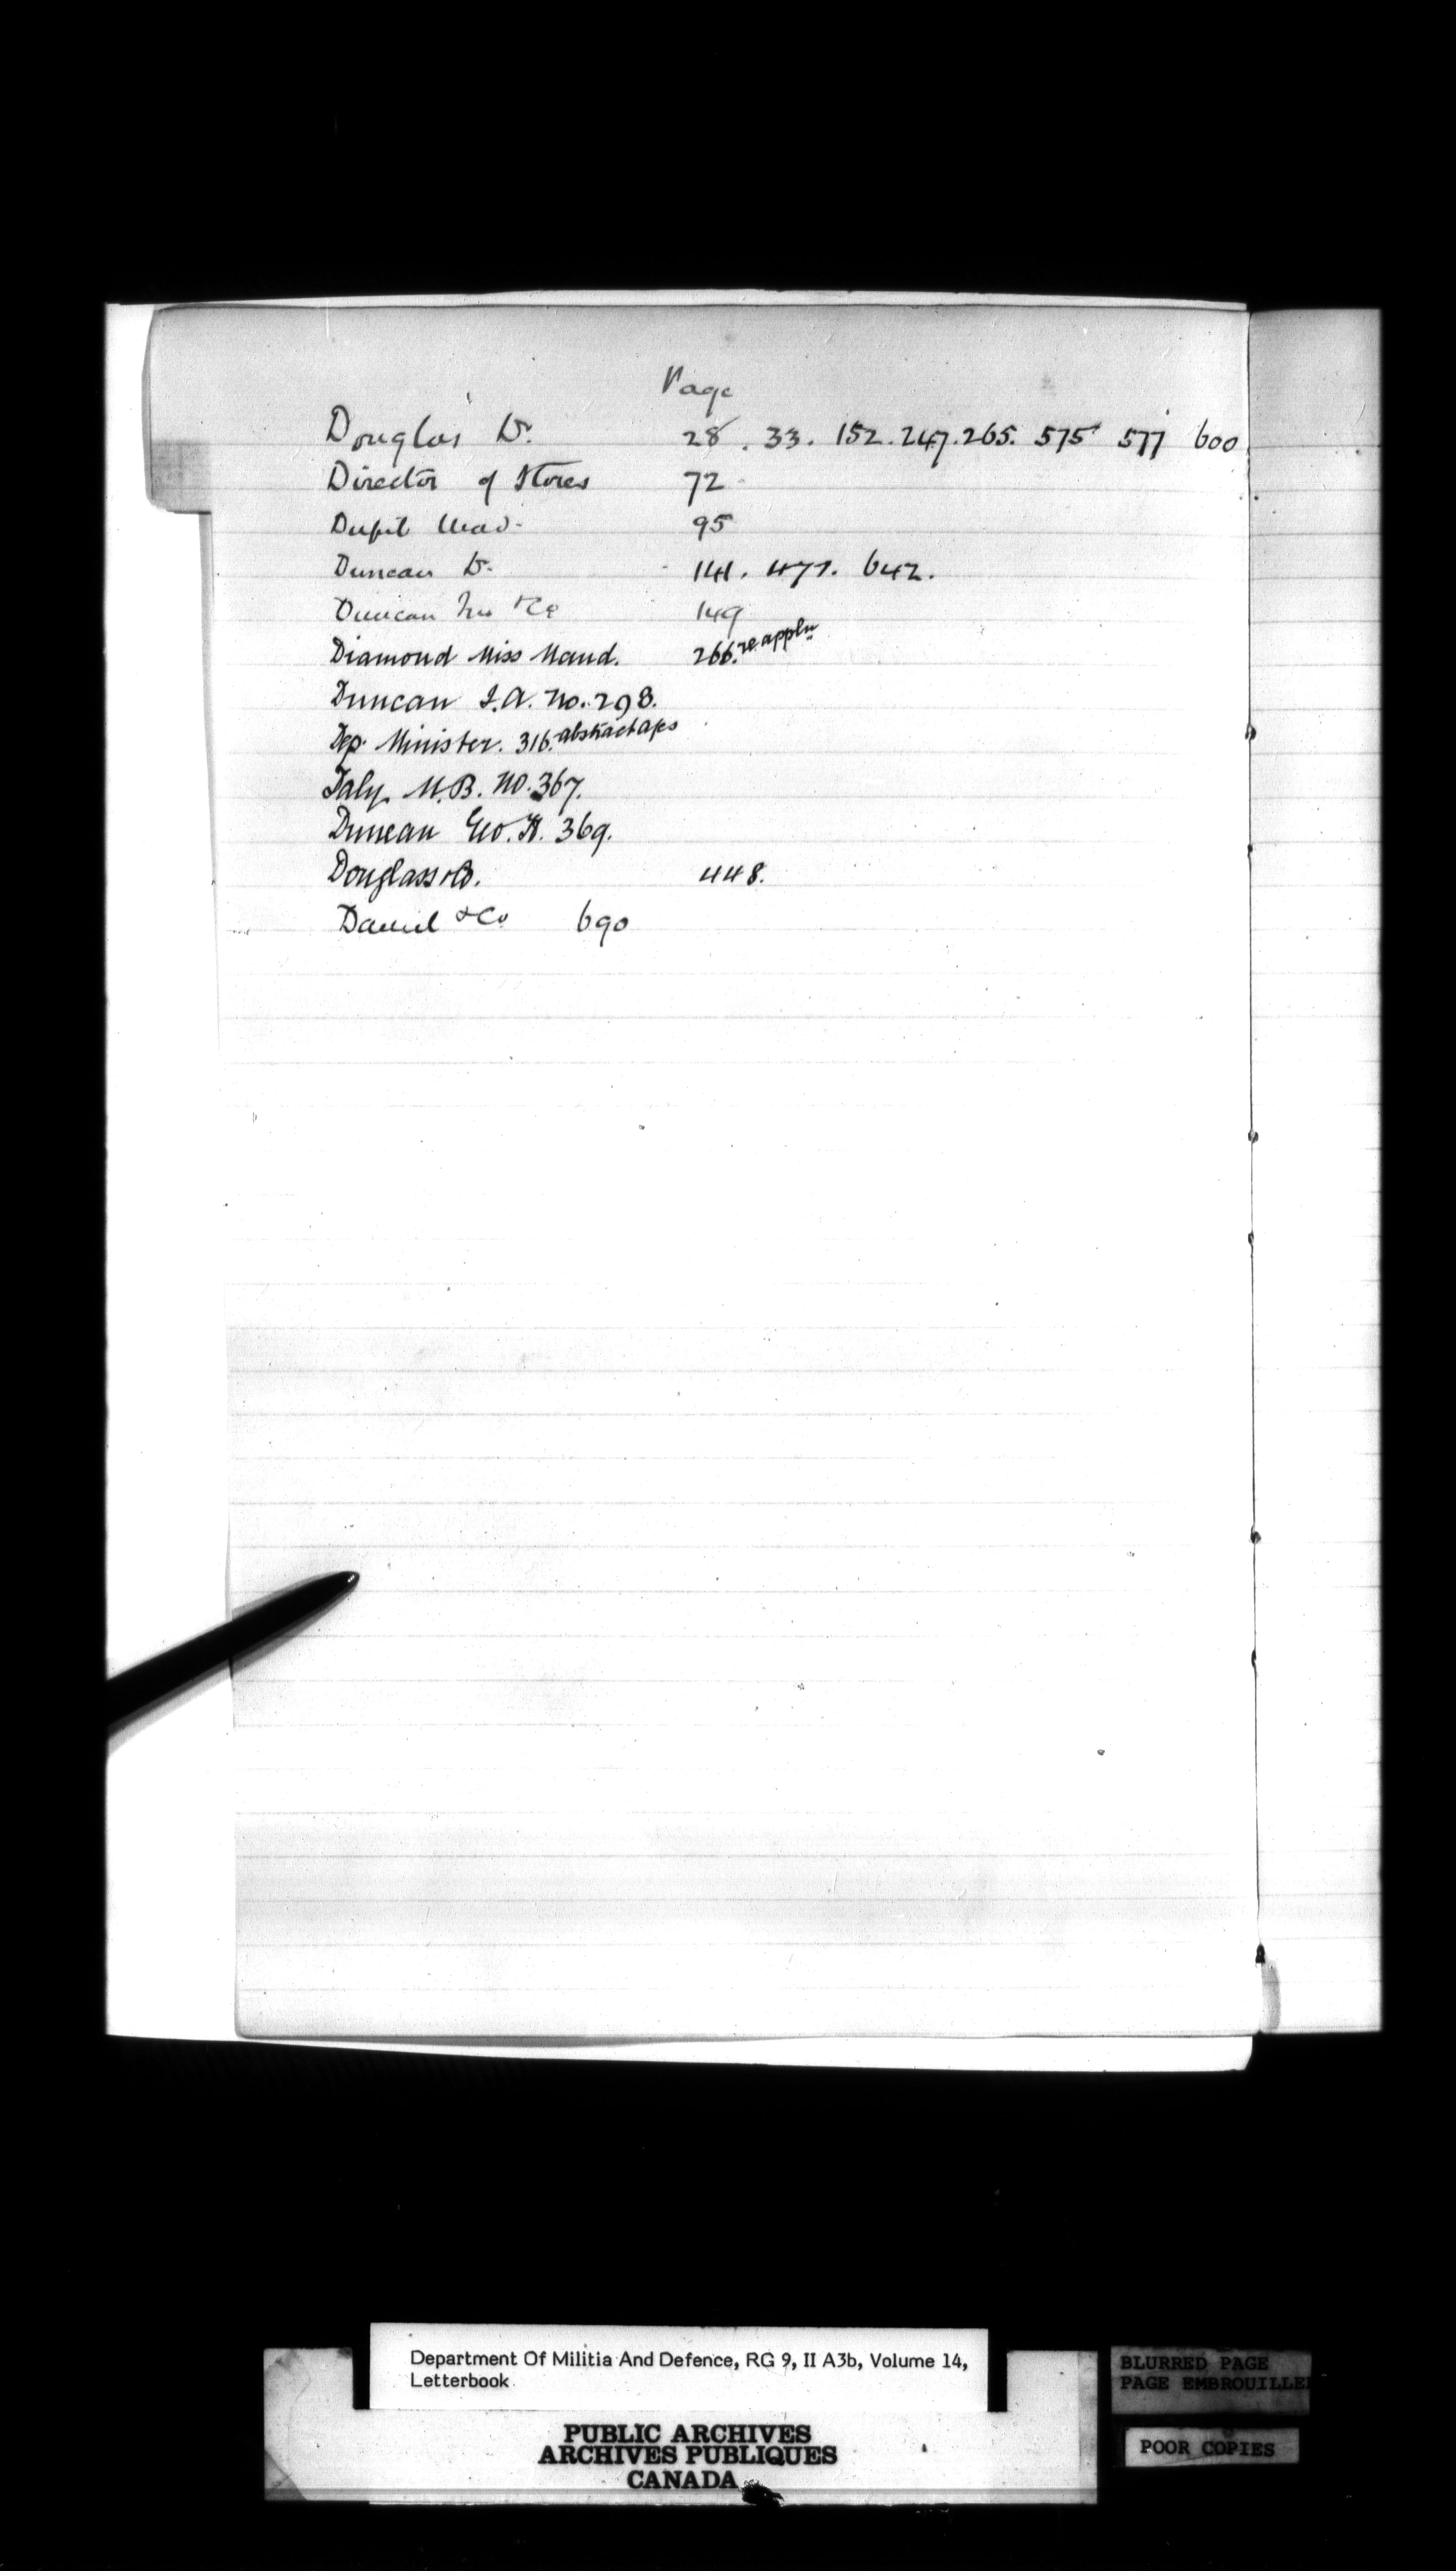 Page
Douglas Dr. 28. 33. 152. 247. 265. 575 577 600
Director of Stores 72
95
Duncan Dr. 141. 477. 642.
Duncan 149
Diamond Miss Maud. 266. re appln
Duncan J.A. No. 298.
Dep. Minister. 316. abstract a/cs
Daly. M.B. No. 367.
Duncan Geo. H. 369.
Douglass 448.
Daniel & Co 690
Department Of Militia And Defence, RG 9, II A3b, Volume 14,
Letterbook
PUBLIC ARCHIVES
ARCHIVES PUBLIQUES
CANADA
BLURRED PAGE
PAGE EMBROUILLEE
POOR COPIES